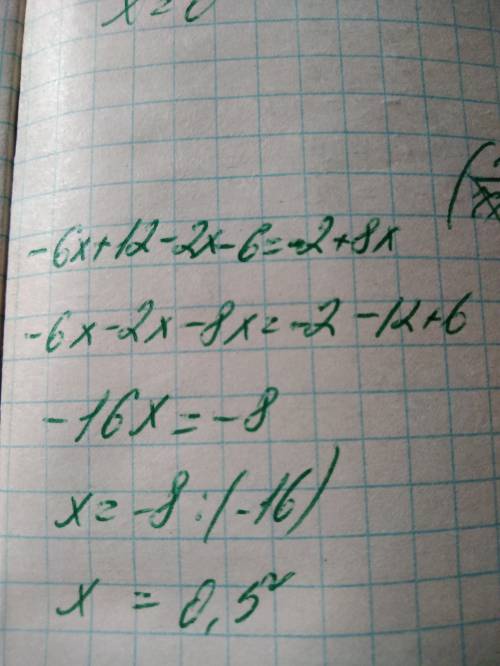 x = 0
-6x+12-2x-6=-2+8x
-6x-2x-8x=-2-12+6
-16x=-8
x=-8:(-16)
x = 0,5